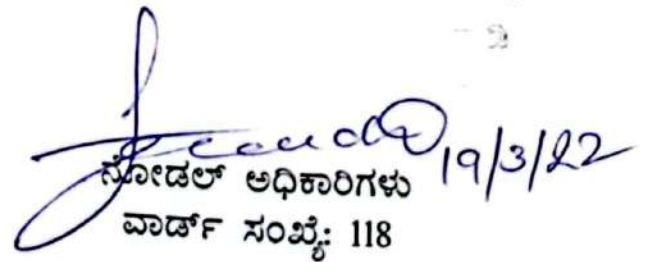 19/3/22
ನೋಡಲ್ ಅಧಿಕಾರಿಗಳು
ವಾರ್ಡ್ ಸಂಖ್ಯೆ: 118